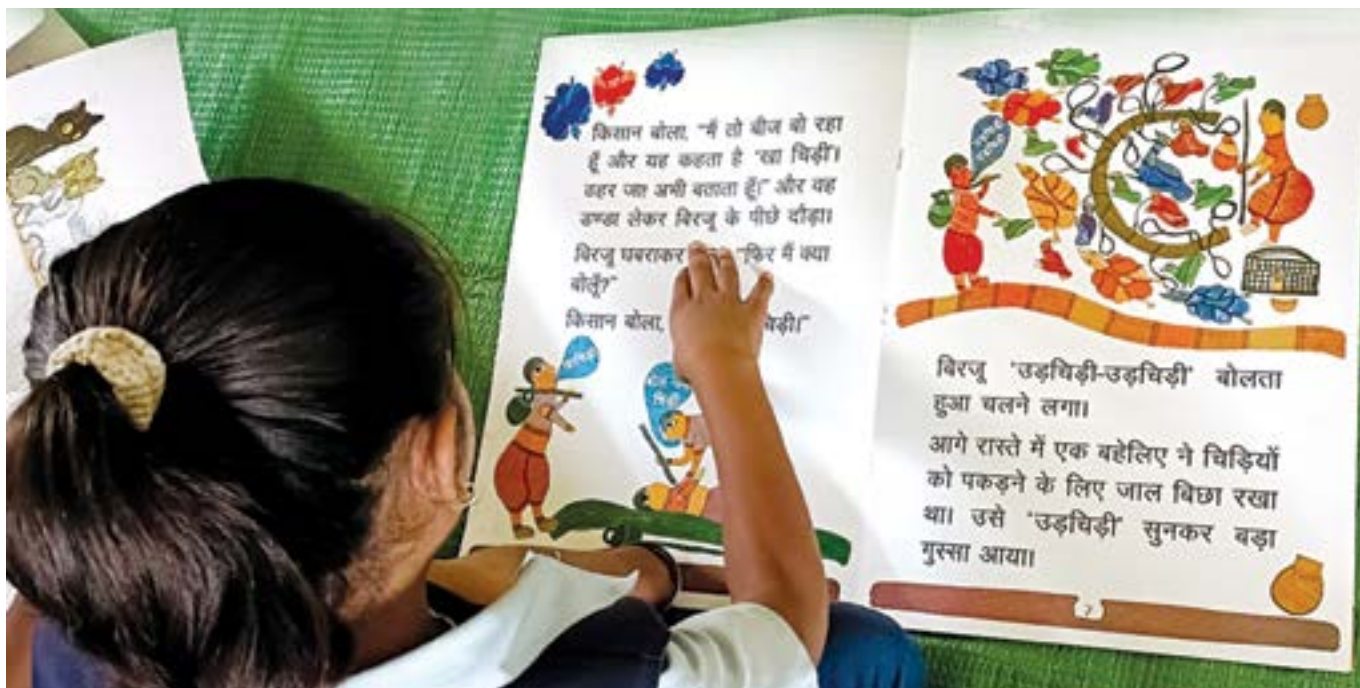 किसान बोला, "मैं तो बीज बो रहा
हूँ और यह कहता है 'खा चिड़ी'।
ठहर जा! अभी बताता हूँ।" और वह
डण्डा लेकर बिरजू के पीछे दौड़ा।
बिरजू घबराकर "फिर मैं क्या
बोलूँ?"
किसान बोला, चिड़ी।"
बिरजू 'उड़चिड़ी-उड़चिड़ी' बोलता
हुआ चलने लगा।
आगे रास्ते में एक बहेलिए ने चिड़ियों
को पकड़ने के लिए जाल बिछा रखा
था। उसे 'उड़चिड़ी' सुनकर बड़ा
गुस्सा आया।
7